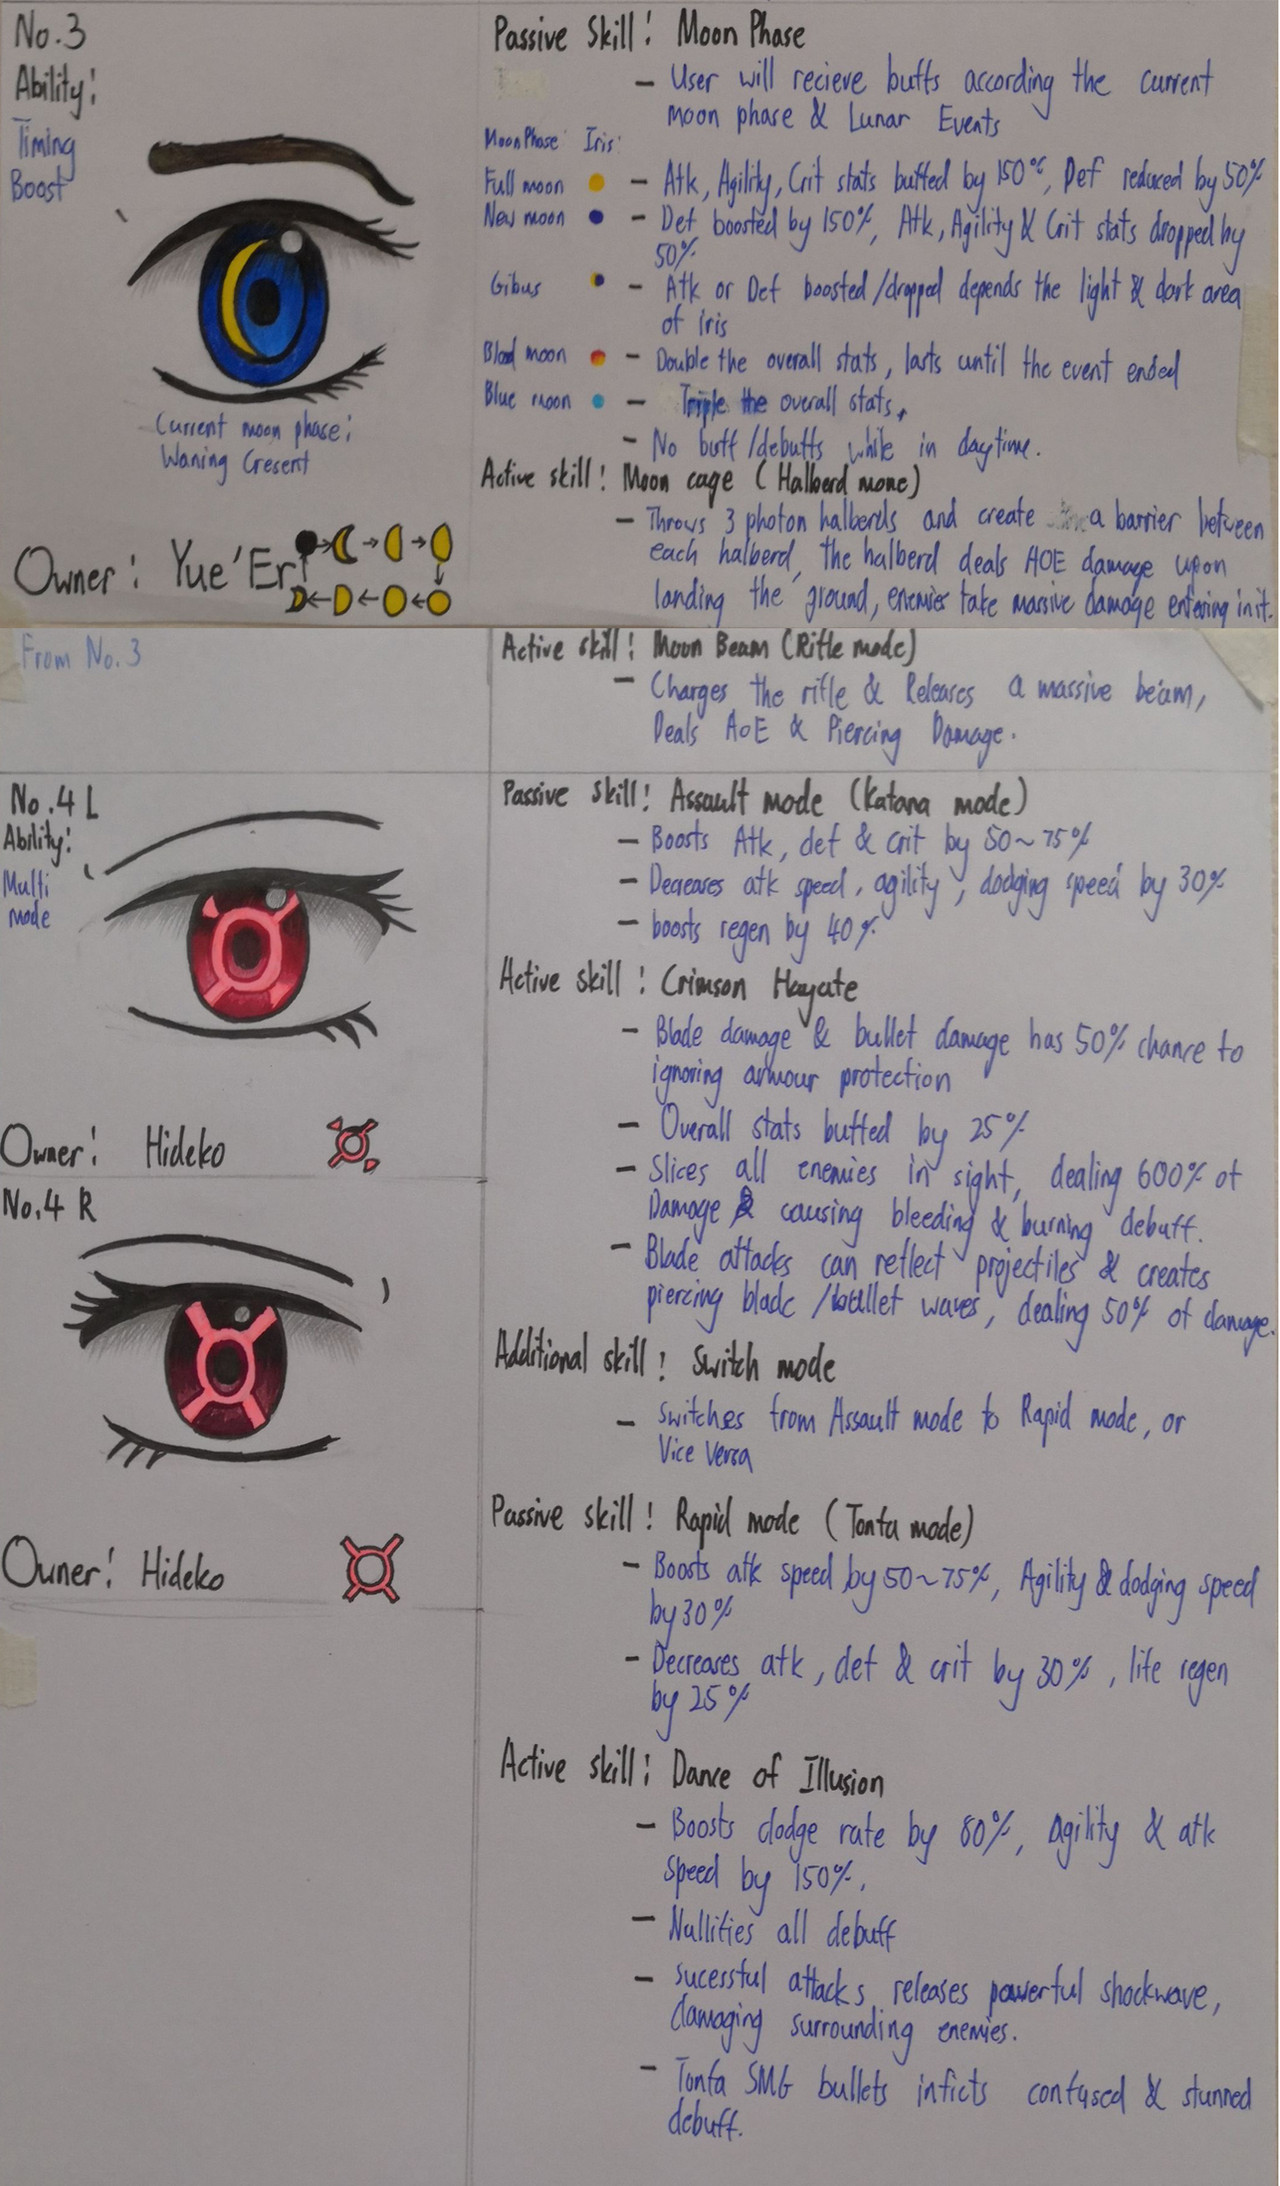 No.3
Ability:
Timing
Boost
Current moon phase:
Waning Cresent
Owner: Yue'Er
Passive Skill: Moon Phase
- User will recieve buffs according the current
moon phase & Lunar Events
Moon Phase: Iris:
Full moon - Atk, Agility, Crit stats buffed by 150%, Def reduced by 50%
New moon - Def boosted by 150%, Atk, Agility & Crit stats dropped by
50%
Gibus - Atk or Def boosted/dropped depends the light & dark area
of iris
Blood moon - Double the overall stats, lasts until the event ended
Blue moon - Triple the overall stats,
- No buff/debuffs while in daytime.
Active skill: Moon cage (Halberd mode)
- Throws 3 photon halberds and create a barrier between
each halberd, the halberd deals AOE damage upon
landing the ground, enemies take massive damage entering in it.
From No.3
Active skill: Moon Beam (Rifle mode)
- Charges the rifle & Releases a massive beam,
Deals AoE & Piercing Damage.
No.4 L
Ability:
Multi
mode
Owner: Hideko
Passive skill: Assault mode (Katana mode)
- Boosts Atk, def & crit by 50~75%
- Decreases atk speed, agility, dodging speed by 30%
- boosts regen by 40%
Active skill: Crimson Hayate
- Blade damage & bullet damage has 50% chance to
ignoring armour protection
- Overall stats buffed by 25%
- Slices all enemies in sight, dealing 600% of
Damage & causing bleeding & burning debuff.
- Blade attacks can reflect projectiles & creates
piercing blade/bullet waves, dealing 50% of damage.
No.4 R
Owner: Hideko
Additional skill: Switch mode
- Switches from Assault mode to Rapid mode, or
Vice Versa
Passive skill: Rapid mode (Tonfa mode)
- Boosts atk speed by 50~75%, Agility & dodging speed
by 30%
- Decreases atk, def & crit by 30%, life regen
by 25%
Active skill: Dance of Illusion
- Boosts dodge rate by 80%, Agility & atk
speed by 150%.
- Nullifies all debuff
- sucessful attacks releases powerful shockwave,
damaging surrounding enemies.
- Tonfa SMG bullets inficts confused & stunned
debuff.